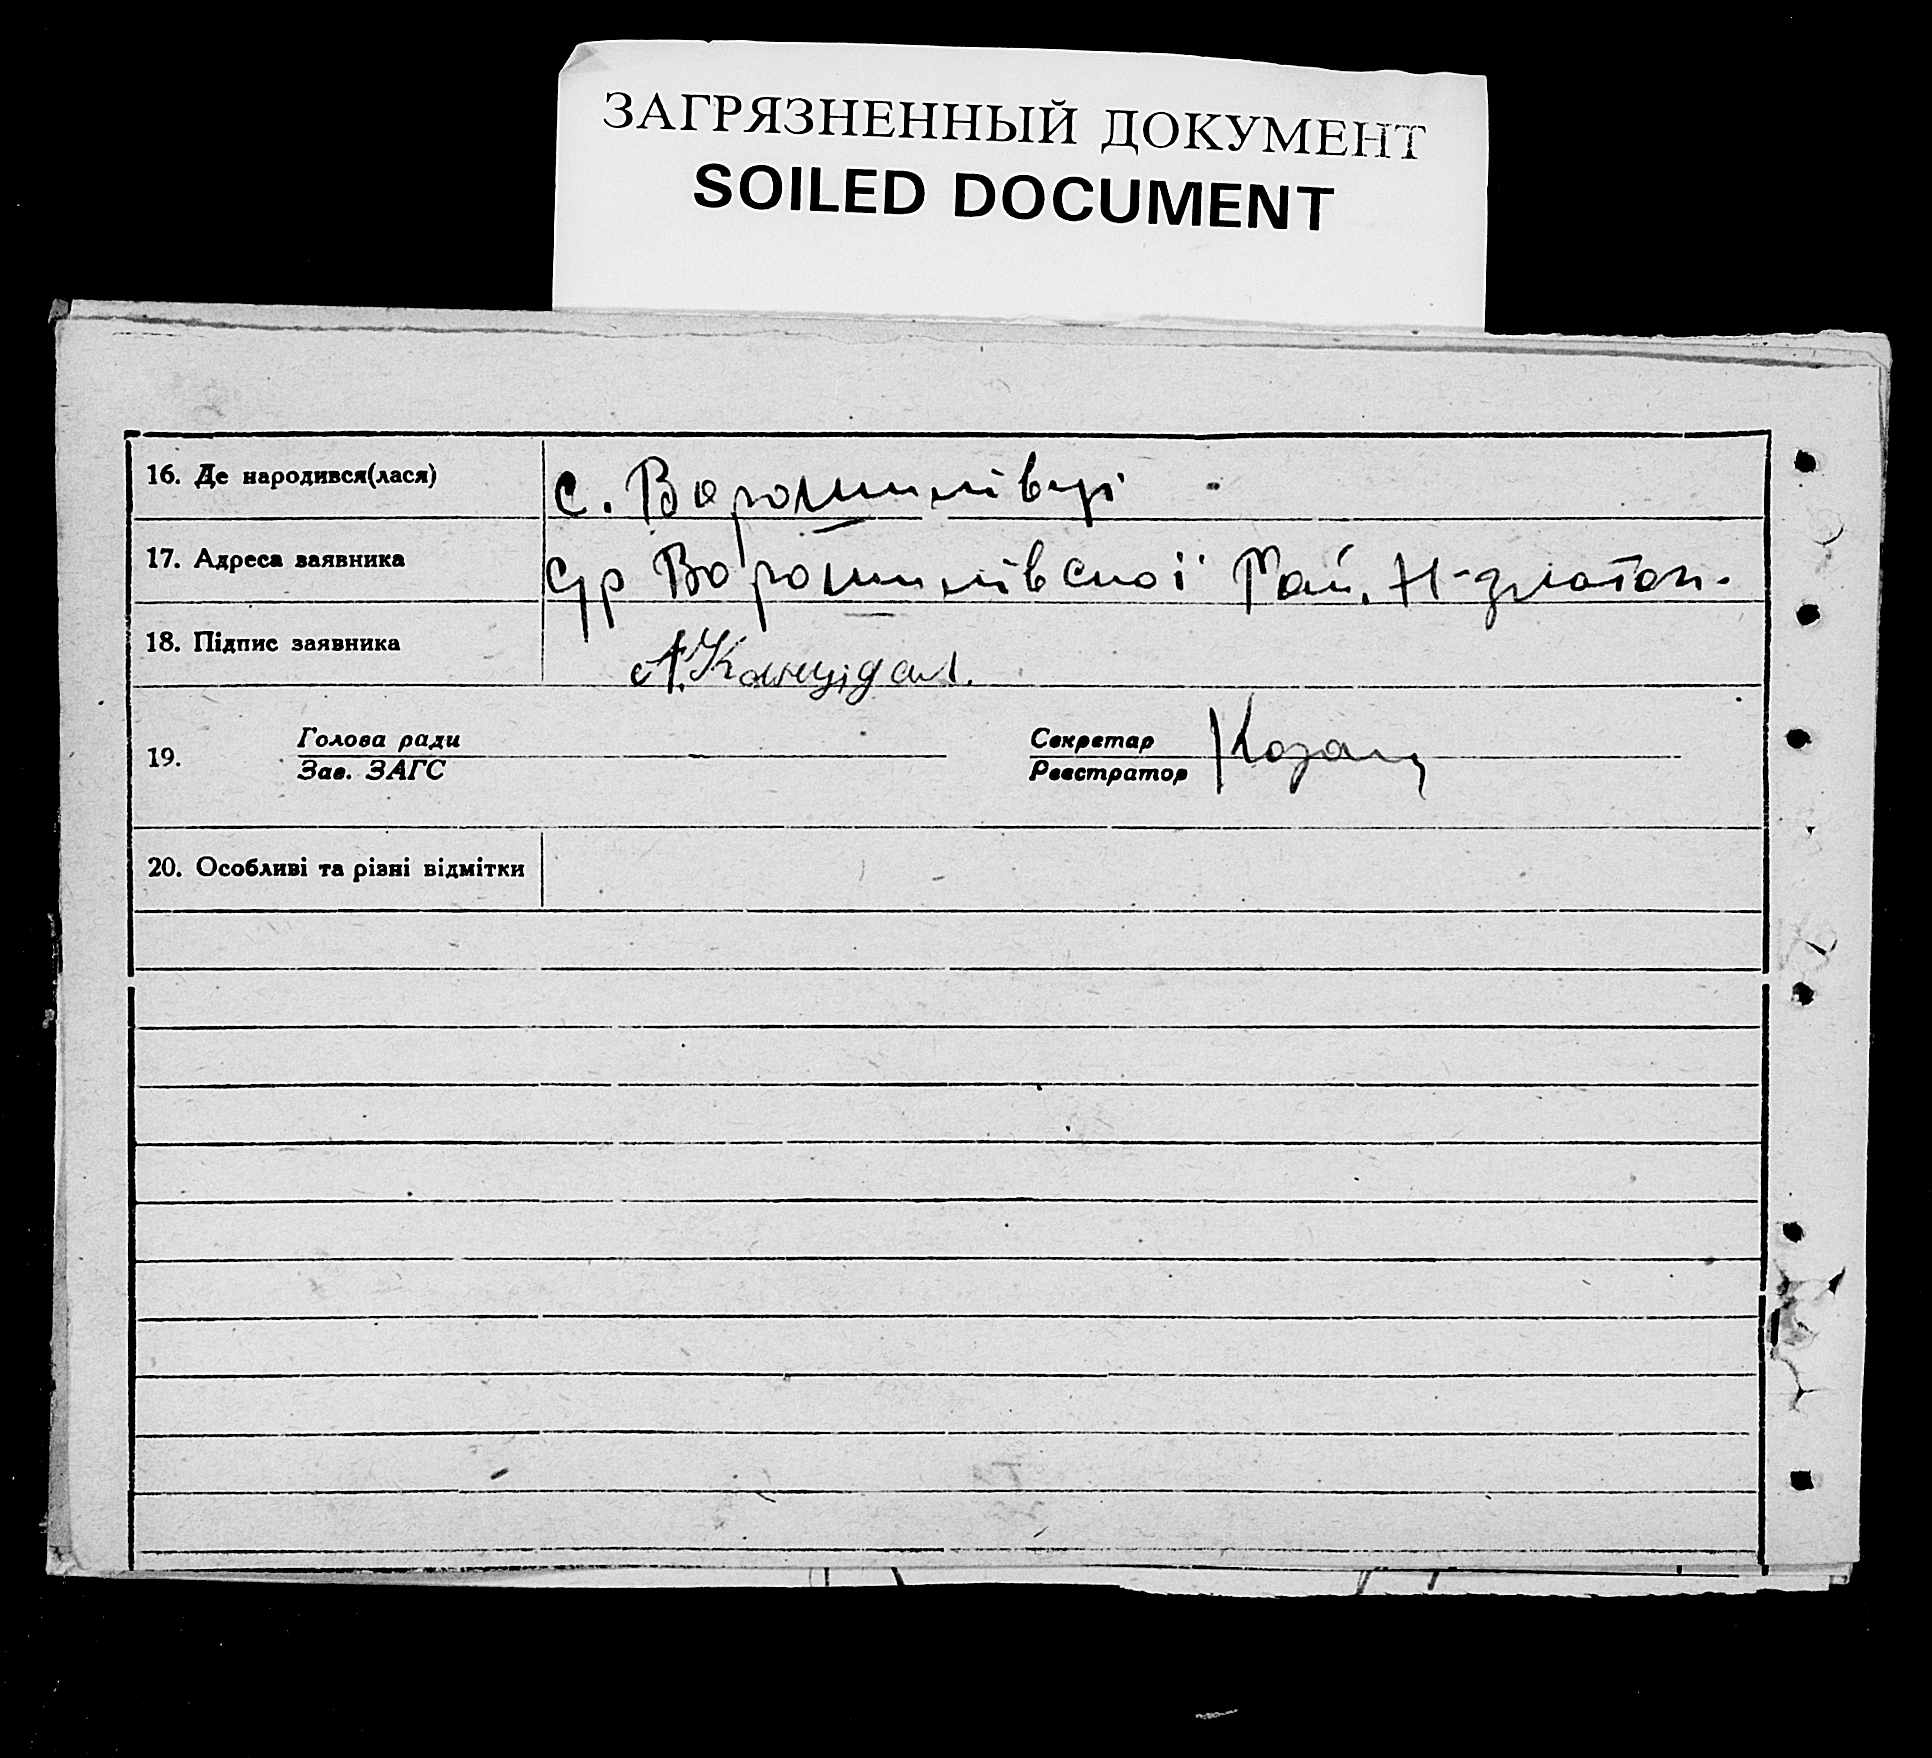 ЗАГРЯЗНЕННЫЙ ДОКУМЕНТ
SOILED DOCUMENT
16. Де народився(лася) с. Ворошилівці
17. Адреса заявника с/р Ворошилівської Рай.
18. Підпис заявника А.
19. Голова ради
Зав. ЗАГС
Секретар
Реєстратор
20. Особливі та різні відмітки